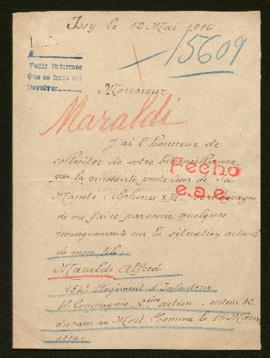 Issy le 12 Mai 1916
15609
Pedir informes
Que se haga así
Devolver
Monsieur
Maraldi
J'ai l'honneur de
solliciter de votre bienveillance
par la puissante protection de Sa
Majesté Alphonse XIII d'Espagne
Fecho
e.a.e.
de me faire parvenir quelques
renseignements sur la situation actuelle
de mon fils
Maraldi Alfred
154e Régiment d'Infanterie
1e Compagnie section
disparu au Mort Homme le